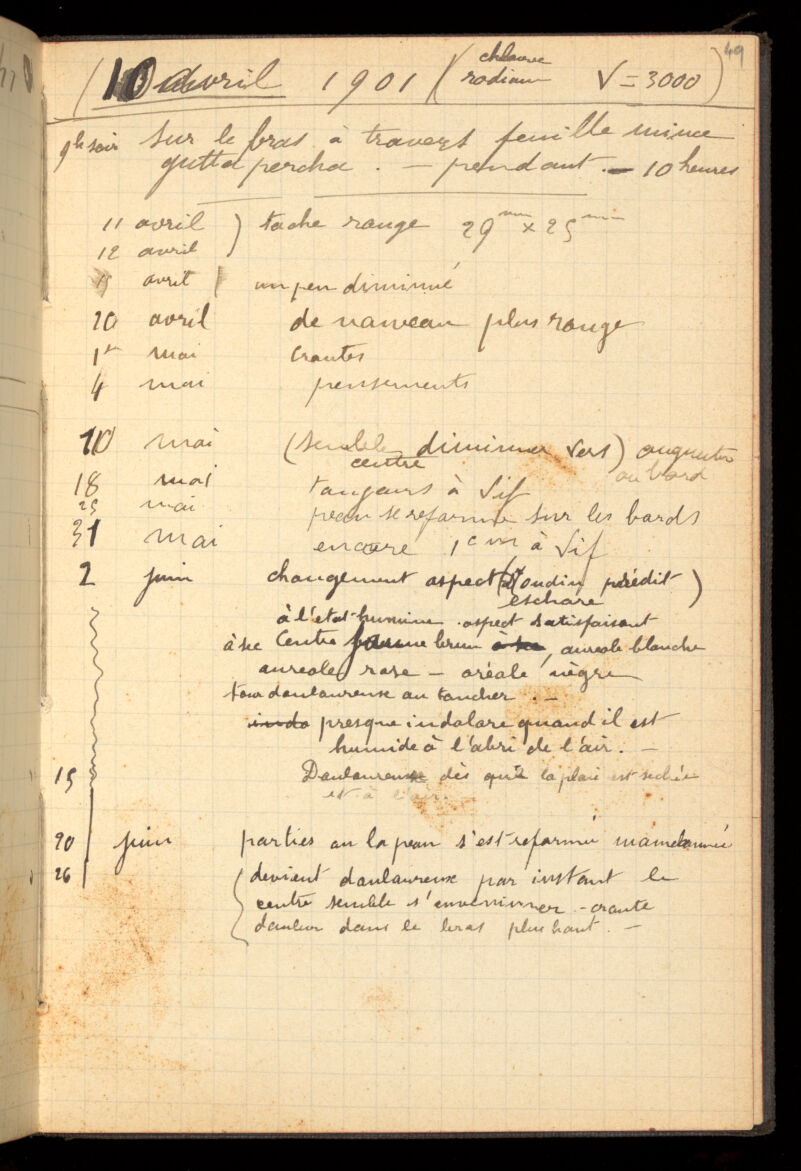 49
(10 avril 1901 (chlorure radium V=3000)
9h soir sur le bras à travers feuille mince
gutta percha. — pendant — 10 heures
11 avril ) tache rouge 29mm x 25mm
12 avril
15 avril un peu diminué
20 avril de nouveau plus rouge
1er mai croutes
4 mai pensements
10 mai (semble diminuer vers) augmenter
centre au bord
18 mai toujours à vif
25 mai peau se reforme sur les bords
31 mai encore 1cm à vif
2 juin changement aspect ( prédit )
eschare
à l'etat humine. aspect satisfaisant
à sec Centre jaune brun à sec, aureole blanche
aureole rose — nègre
tour douloureuse au toucher. —
indo presque indolore quand il est
humide à l'abri de l'air. —
15 Douloureuse dès que la plaie est sechée
et à l'air
20 juin parties ou la peau s'est reformée mamelonnée
26 (devient douloureux par instant le
centre semble s'envenimer - croute
douleur dans le bras plus haut. —